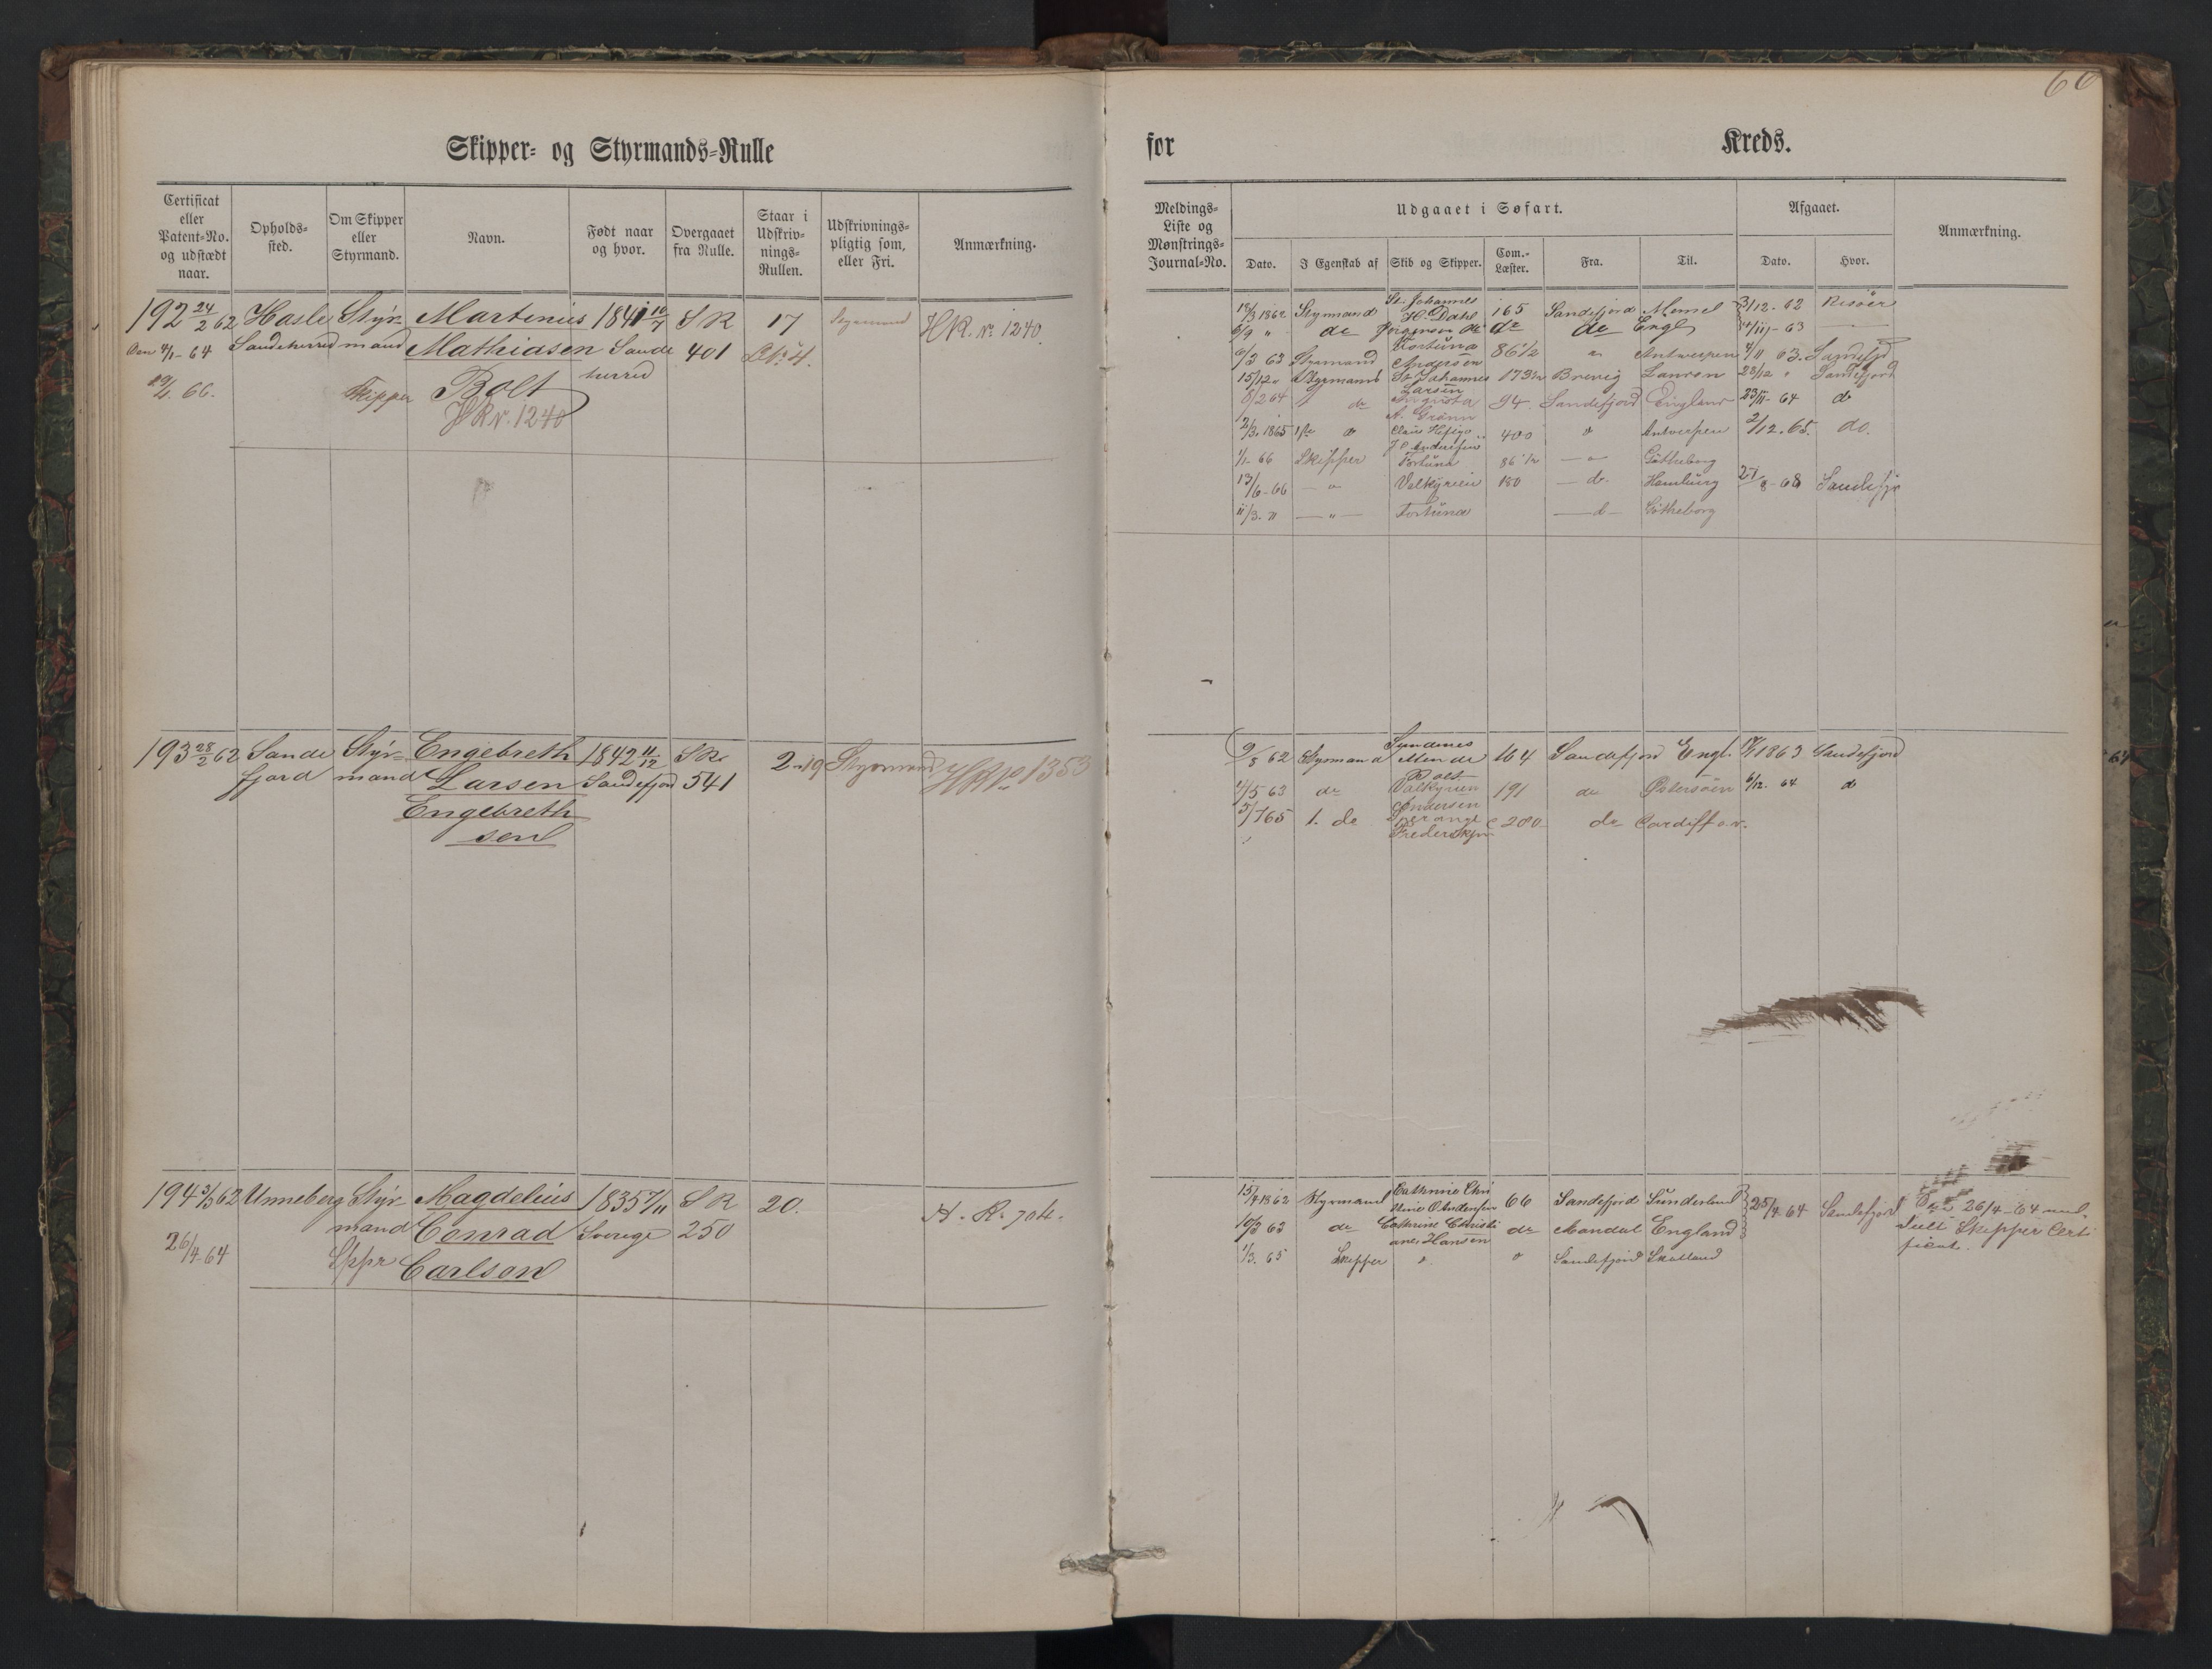 60
Skipper- og Styrmands-Rulle
for Kreds.
Certificat eller Patent-No. og udstædt naar.
Opholds-sted.
Om Skipper eller Styrmand.
Navn.
Født naar og hvor.
Overgaaet fra Rulle.
Staar i Udskriv-nings-Rullen.
Udskrivnings-pligtig som, eller Fri.
Anmærkning.
Meldings-Liste og Mønstrings-Journal-No.
Udgaaet i Søfart.
Dato.
I Egenskab af
Skib og Skipper.
Com.-Læster.
Fra.
Til.
Afgaaet.
Dato.
Hvor.
Anmærkning.
192 24/2 62 Hasle Styr- Martinius 1841 10/7 S R 17 Styrmand HR. No 1240.
4/1-64 Sandeherred mand Mathiasen Sande 401
66. Skipper Bolt herred
HR No. 1240
13/3 1862 Styrmand St. Johannes 165 Sandefjord Memel 3/12-62 Risöer
H. Dahl
6/9 " do do do Engl - 63
6/3 63 Styrmand Fortuna 86 1/2 " Antwerpen 4/11 63. Sandefjd
Andersen
15/12 " Styrmand St Johannes 173 1/2 Brevig 28/12 " Sandefjord
Larsen
8/2 64 do Augusta 94. Sandefjord England 23/11-64 do
A. Grönn
2/3. 1865 1ste do 400 " Antwerpen 2/12.65. do.
1/1-66 Skipper Fortuna 86 1/2 — " Götheborg
13/6-66 — " Valkyrien 180 — do. Hamburg 27/8-68 Sandefj
11/3. " — " — Fortuna — d — Götheborg
193 28/2 62 Sande Styr- Engebreth 1842 11/12 S R. 2-19 Styrmand HR No 1353
fjord mand Larsen Sandefjord 541
Engebreth
sen
9/8 62 Styrmand 164 Sandefjord Engl. 1863 Sandefjord
Bolt
/5 63 do Valkyrien 191 do Östersöen 6/12. 64 do
Andersen
5/7 65 1. do 280 do Cardiff o.v.
194 3/3 62 Unneberg Styr- Magdelius 1835 7/11 S R 20. H. R. 704.
mand Conrad Sverige 250
26/4-64 Sppr Carlson
15/4 1862 Styrmand Cathrine Chri 66 Sandefjord Sunderland 25/4-64 Sandefjord 26/4-64 med-
stine O Andersen
10/3 63 do Cathrine Christi do Mandal England delt Skipper Certi
ane Hansen
1/3. 65 Skipper " " Sandefjord Skotland ficat.